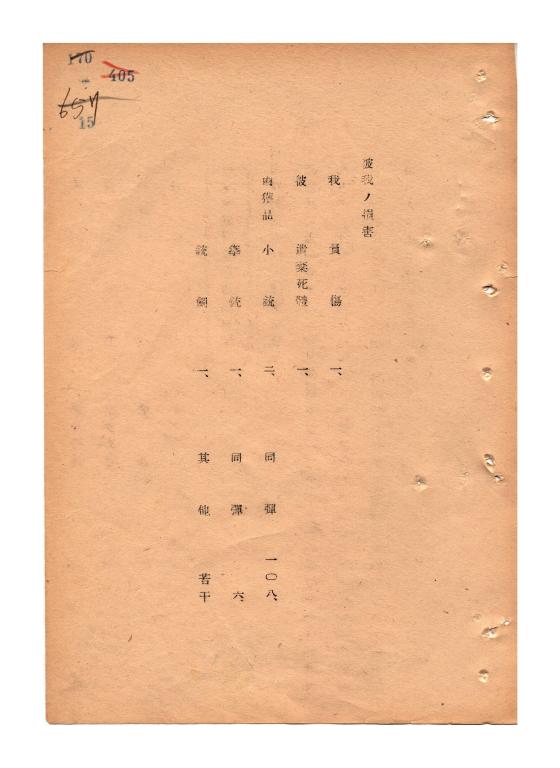 170
405
657
15
彼我ノ損害
我 負傷 一、
彼 遺棄死體 一、
鹵獲品 小銃 二、 同彈 一〇八、
拳銃 一、 同彈 六、
銃劍 一、 其他 若干